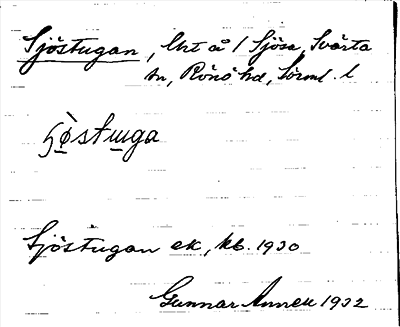 Sjöstugan, Urt å / Sjösa, Svärta
sn, Rönö hd, Sörml. l
ʃö̀stuga
Sjöstugan ek, kb. 1930
Gunnar Annell 1932